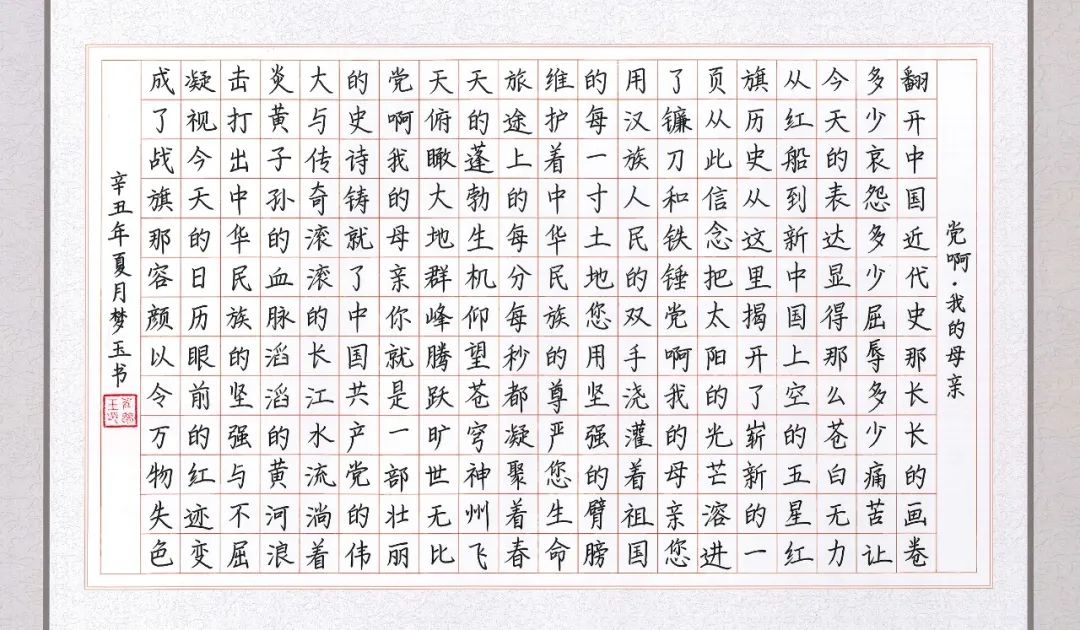 党啊·我的母亲
翻开中国近代史那长长的画卷
多少哀怨多少屈辱多少痛苦让
今天的表达显得那么苍白无力
从红船到新中国上空的五星红
旗历史从这里揭开了崭新的一
页从此信念把太阳的光芒溶进
了镰刀和铁锤党啊我的母亲您
用汉族人民的双手浇灌着祖国
的每一寸土地您用坚强的臂膀
维护着中华民族的尊严您生命
旅途上的每分每秒都凝聚着春
天的蓬勃生机仰望苍穹神州飞
天俯瞰大地群峰腾跃旷世无比
党啊我的母亲你就是一部壮丽
的史诗铸就了中国共产党的伟
大与传奇滚滚的长江水流淌着
炎黄子孙的血脉滔滔的黄河浪
击打出中华民族的坚强与不屈
凝视今天的日历眼前的红迹变
成了战旗那容颜以令万物失色
辛丑年夏月梦玉书